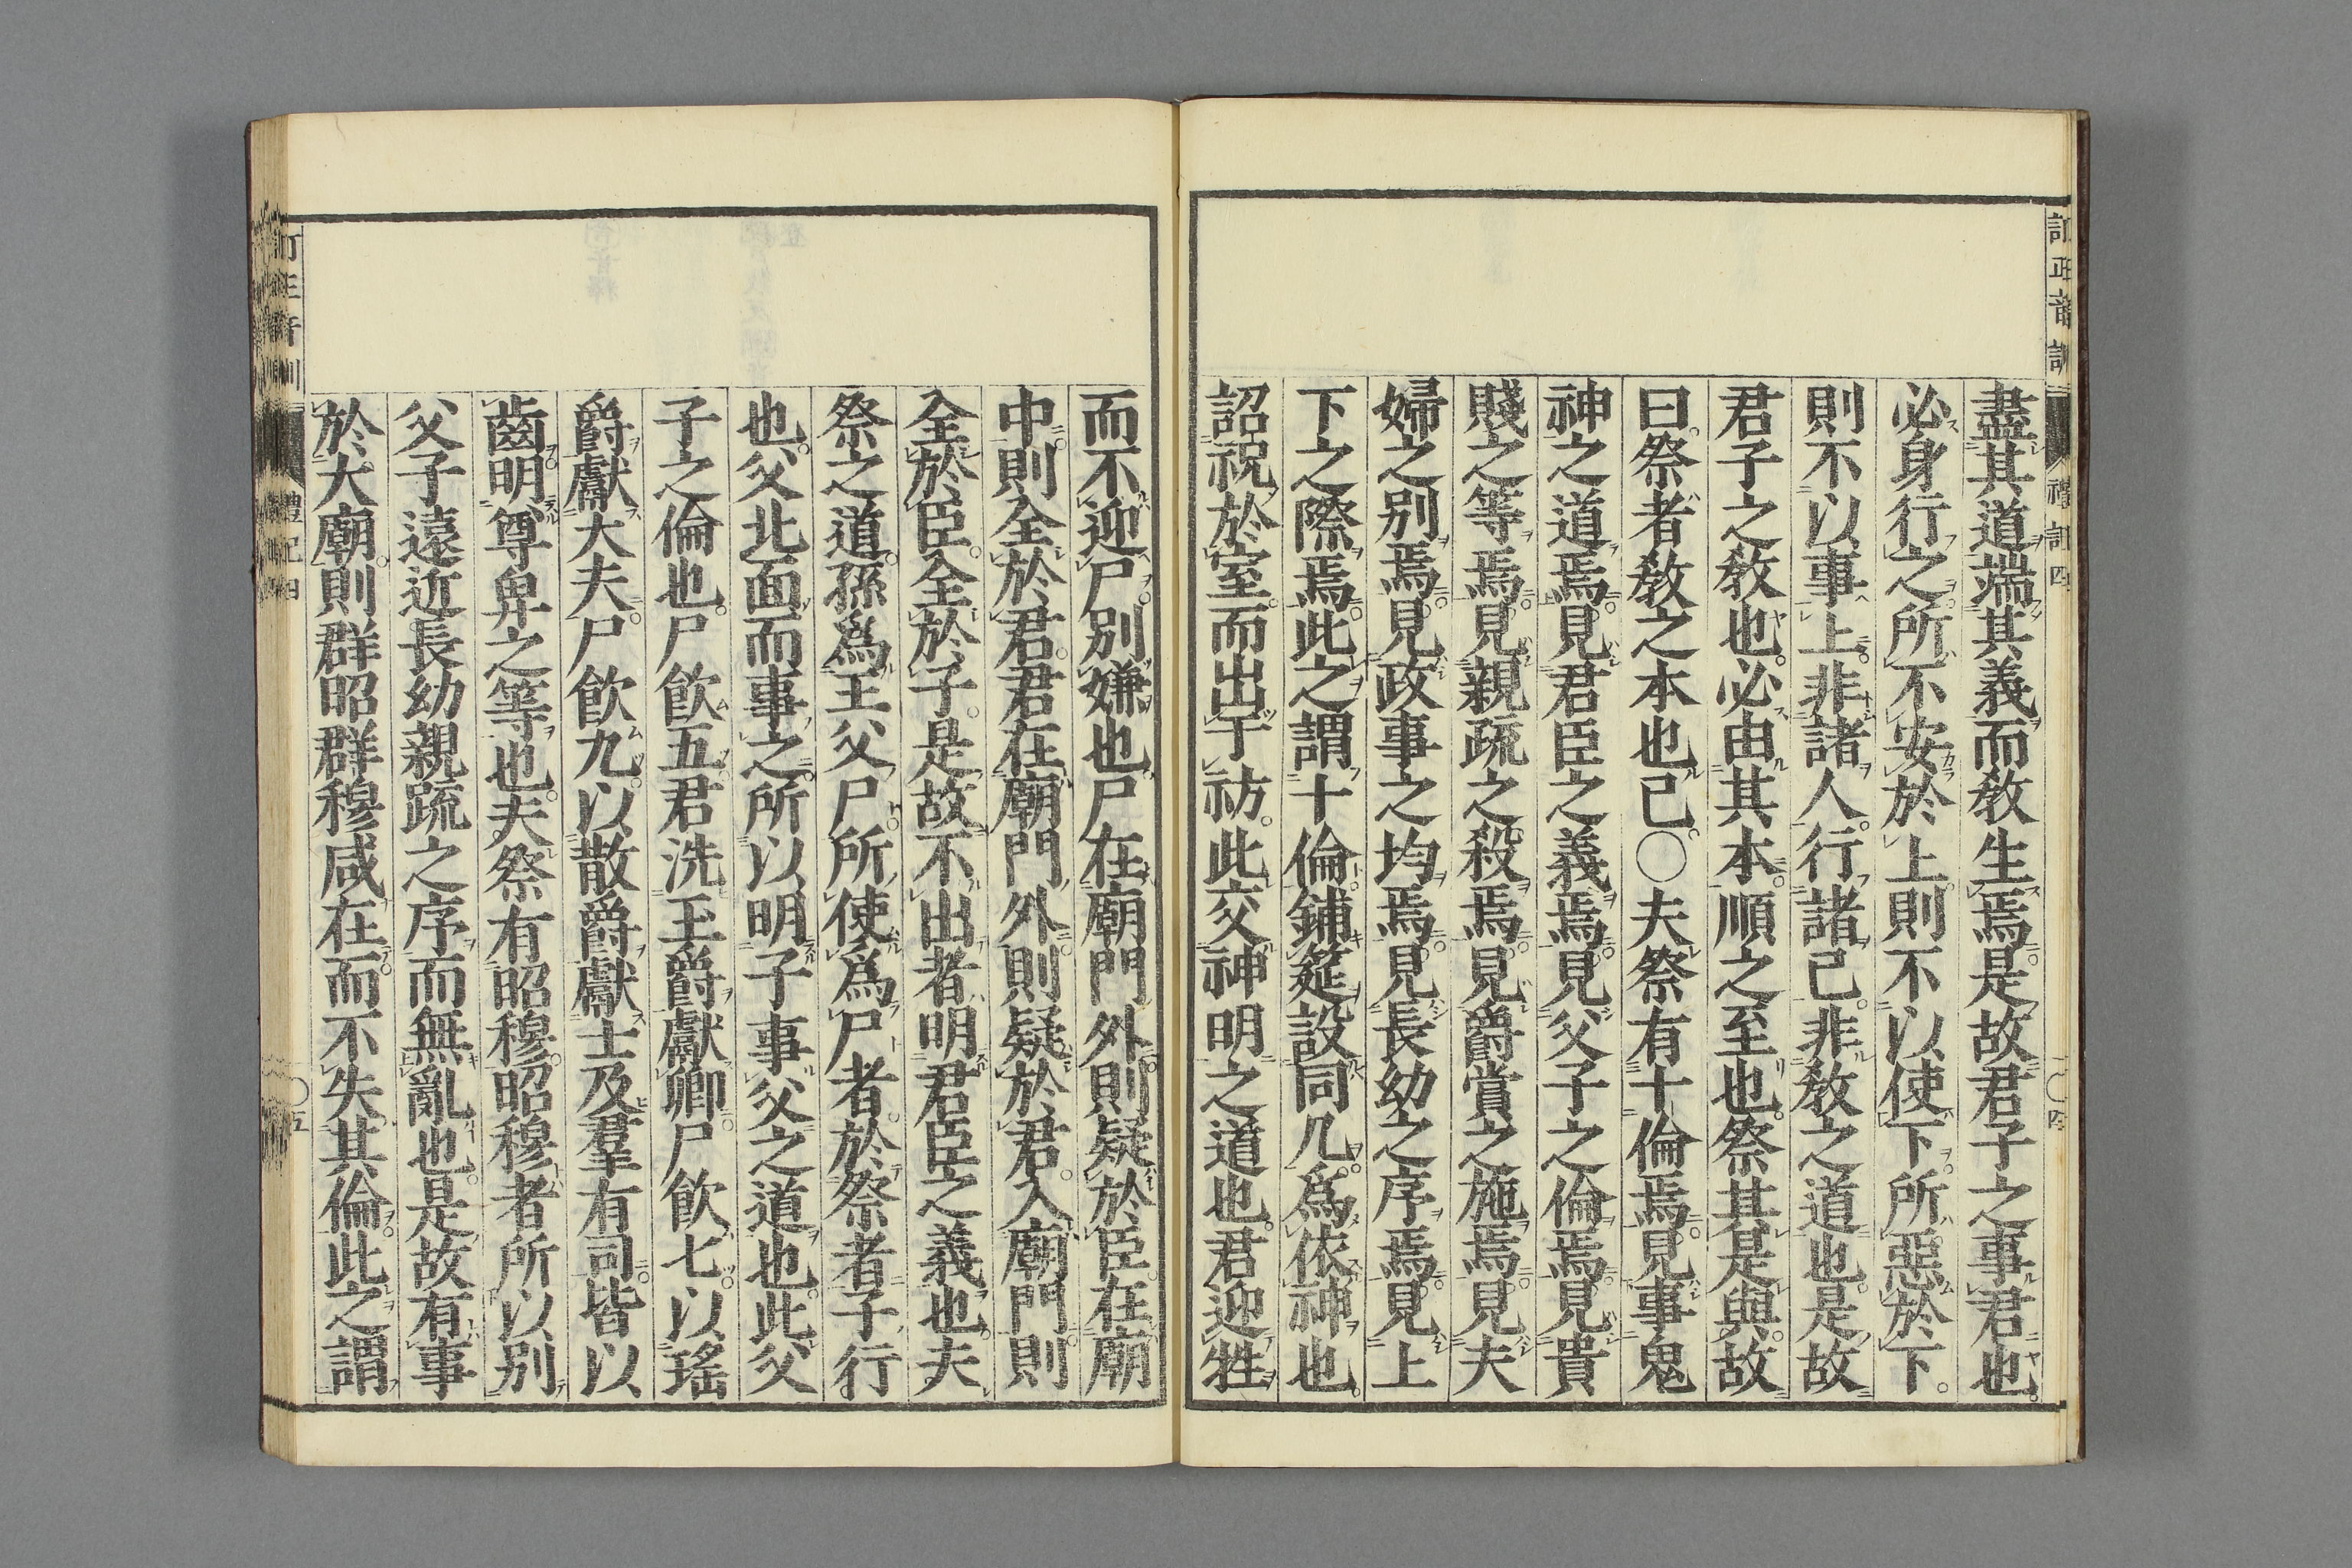 盡其道端其義而教生焉是故君子之事君也
必身行之所不安於上則不以使下所惡於下
則不以事上非諸人行諸己非教之道也是故
君子之教也必由其本順之至也祭其是與故
曰祭者教之本也己〇夫祭有十倫焉見事鬼
神之道焉見君臣之義焉見父子之倫焉見貴
賤之等焉見親疏之殺焉見爵賞之施焉見夫
婦之別焉見政事之均焉見長幼之序焉見上
下之際焉此之謂十倫鋪筵設同几爲依神也
詔祝於室而出于祊此交神明之道也君迎牲
而不迎尸別嫌也尸在廟門外則疑於臣在廟
中則全於君君在廟門外則疑於君入廟門則
全於臣全於子是故不出者明君臣之義也夫
祭之道孫爲王父尸所使爲尸者於祭者子行
也父北面而事之所以明子事父之道也此父
子之倫也尸飮五君洗玉爵獻卿尸飮七以瑤
爵獻大夫尸飮九以散爵獻士及羣有司皆以
齒明尊卑之等也夫祭有昭穆昭穆者所以別
父子遠近長幼親疏之序而無亂也是故有事
於大廟則群昭群穆咸在而不失其倫此之謂
訂正音訓
禮記四
五